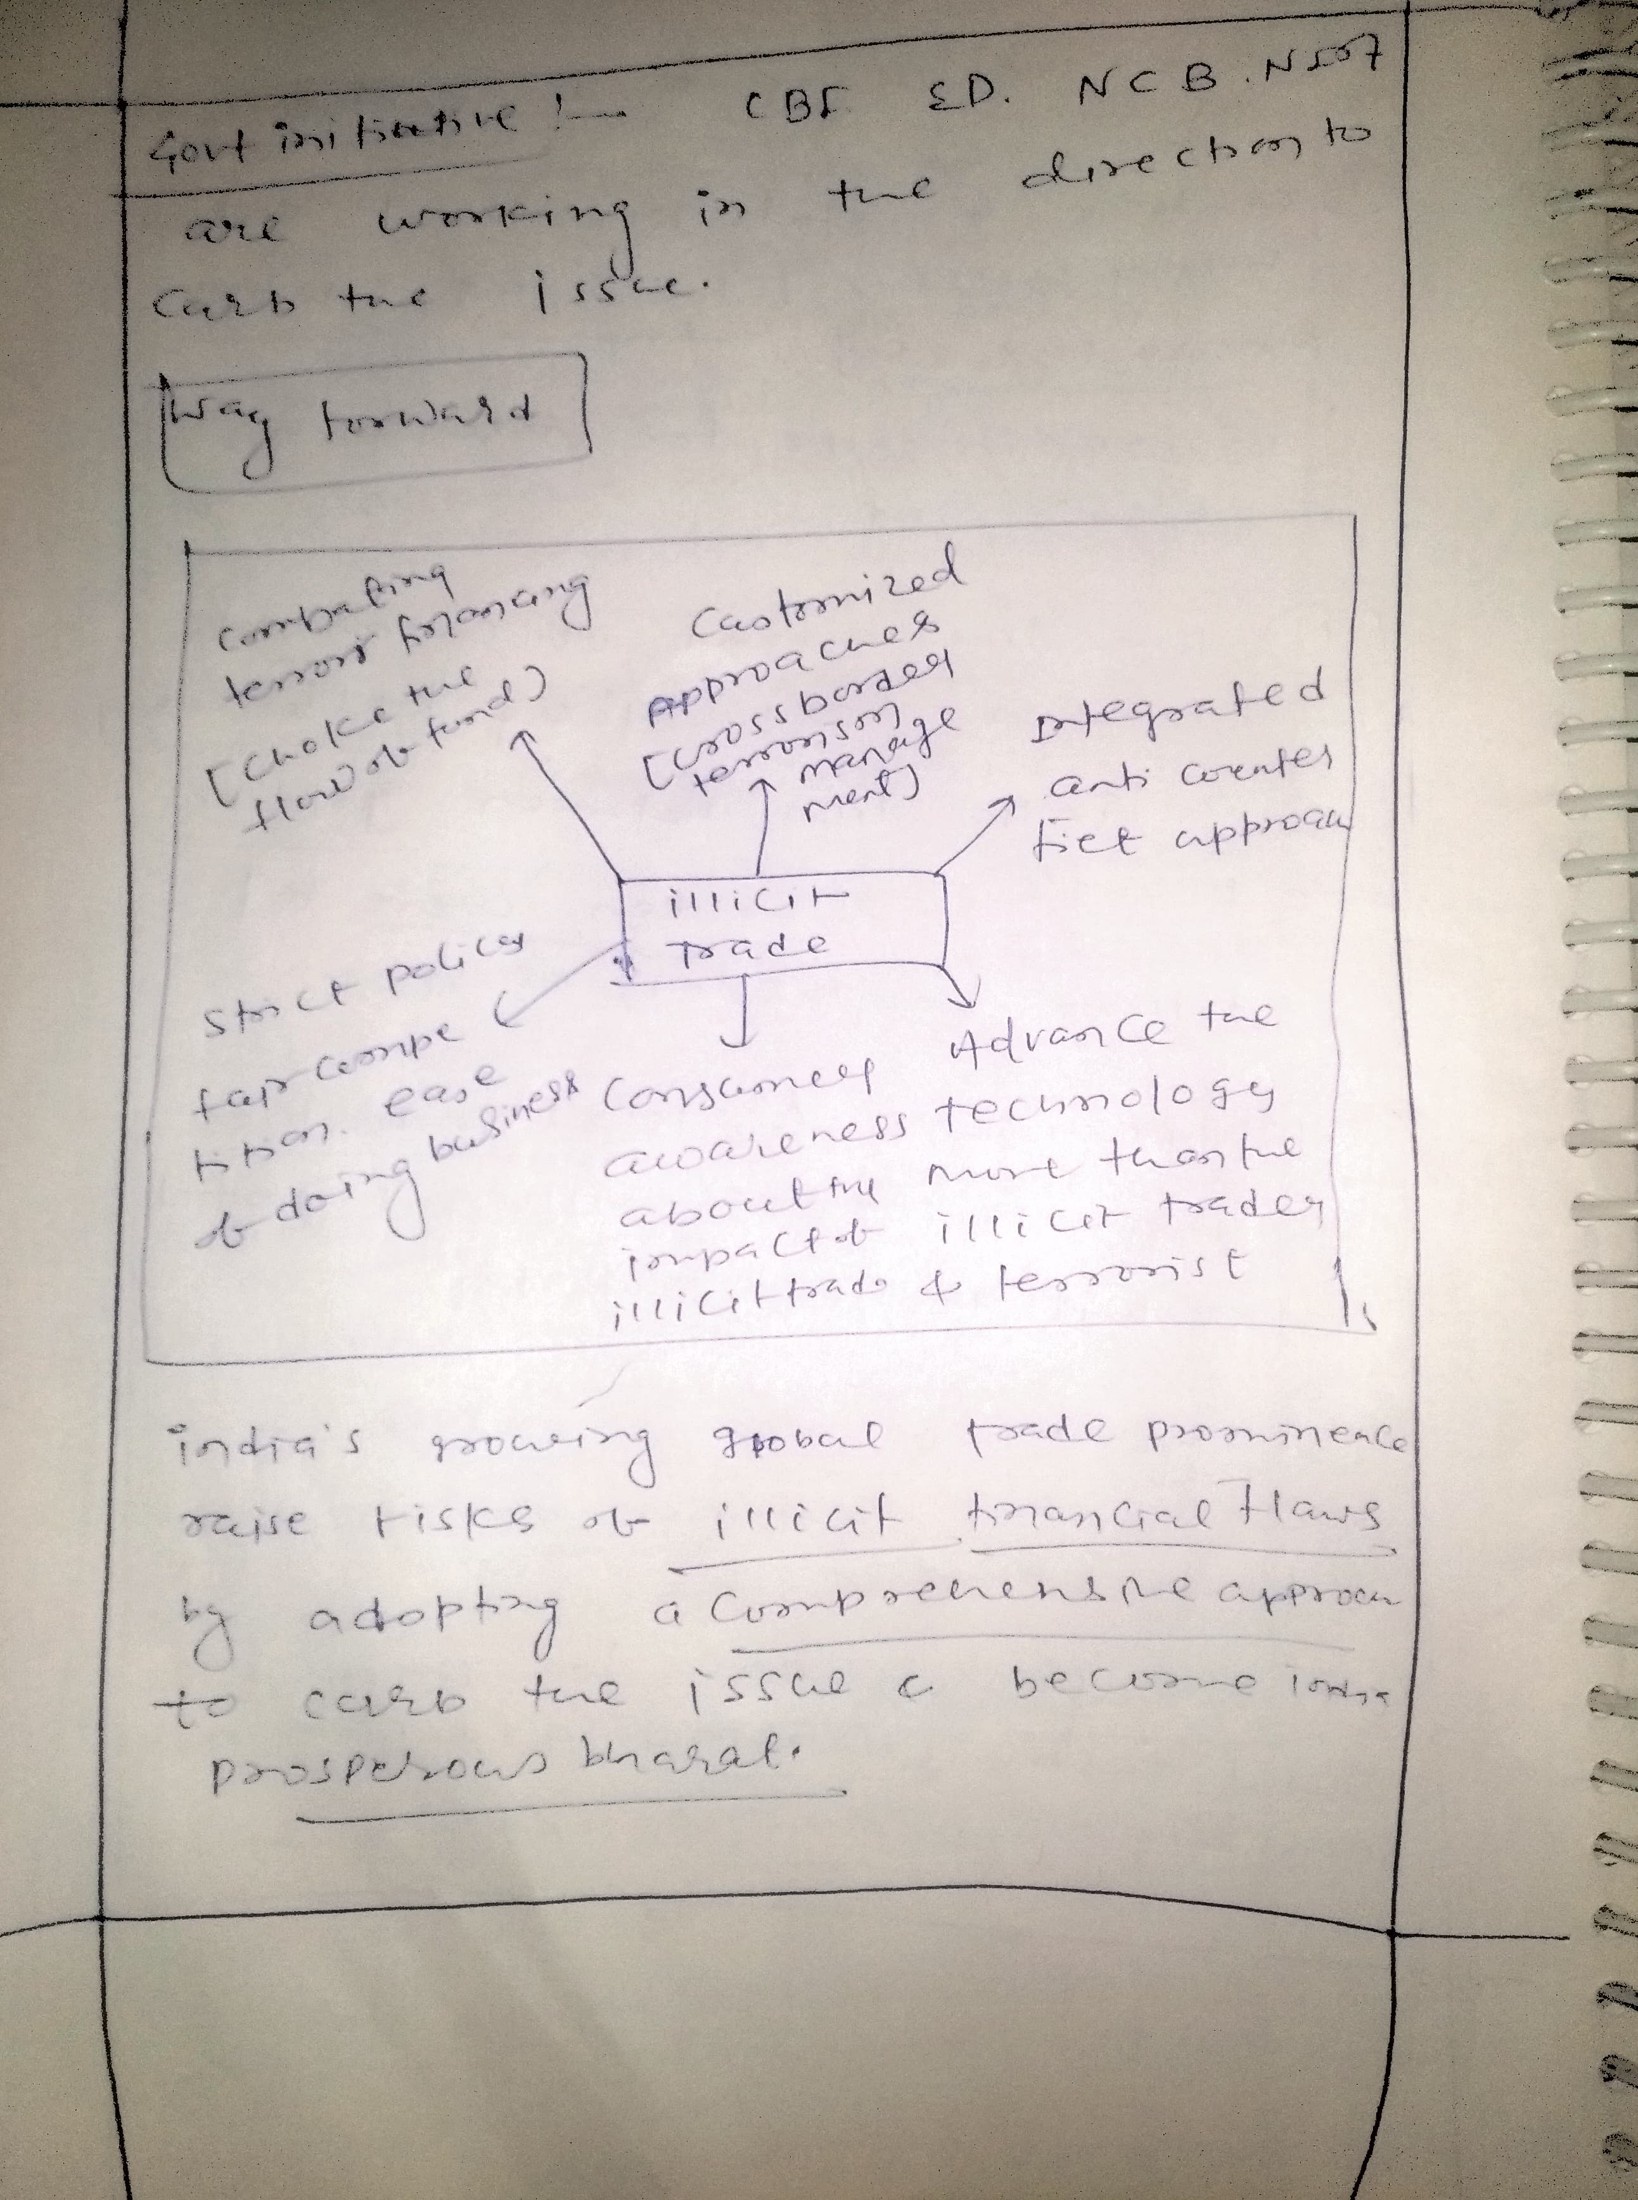 Govt initiative :- CBI ED. NCB. N
are working in the direction to
curb the issue.
Way forward
combating
terror financing
[choke the
flow of fund]
Customized
Approaches
[cross border
terrorism
manage
ment]
Integrated
anti counter
fiet approach
illicit
Trade
Strict policy
fair compe
tition. ease
of doing business
Consumer
awareness
about the
impact of
illicit trade
Advance the
technology
more than the
illicit trader
& terrorist
india's growing global trade prominence
raise risks of illicit financial flows
by adopting a comprehensive approach
to curb the issue & become india
prosperous bharat.